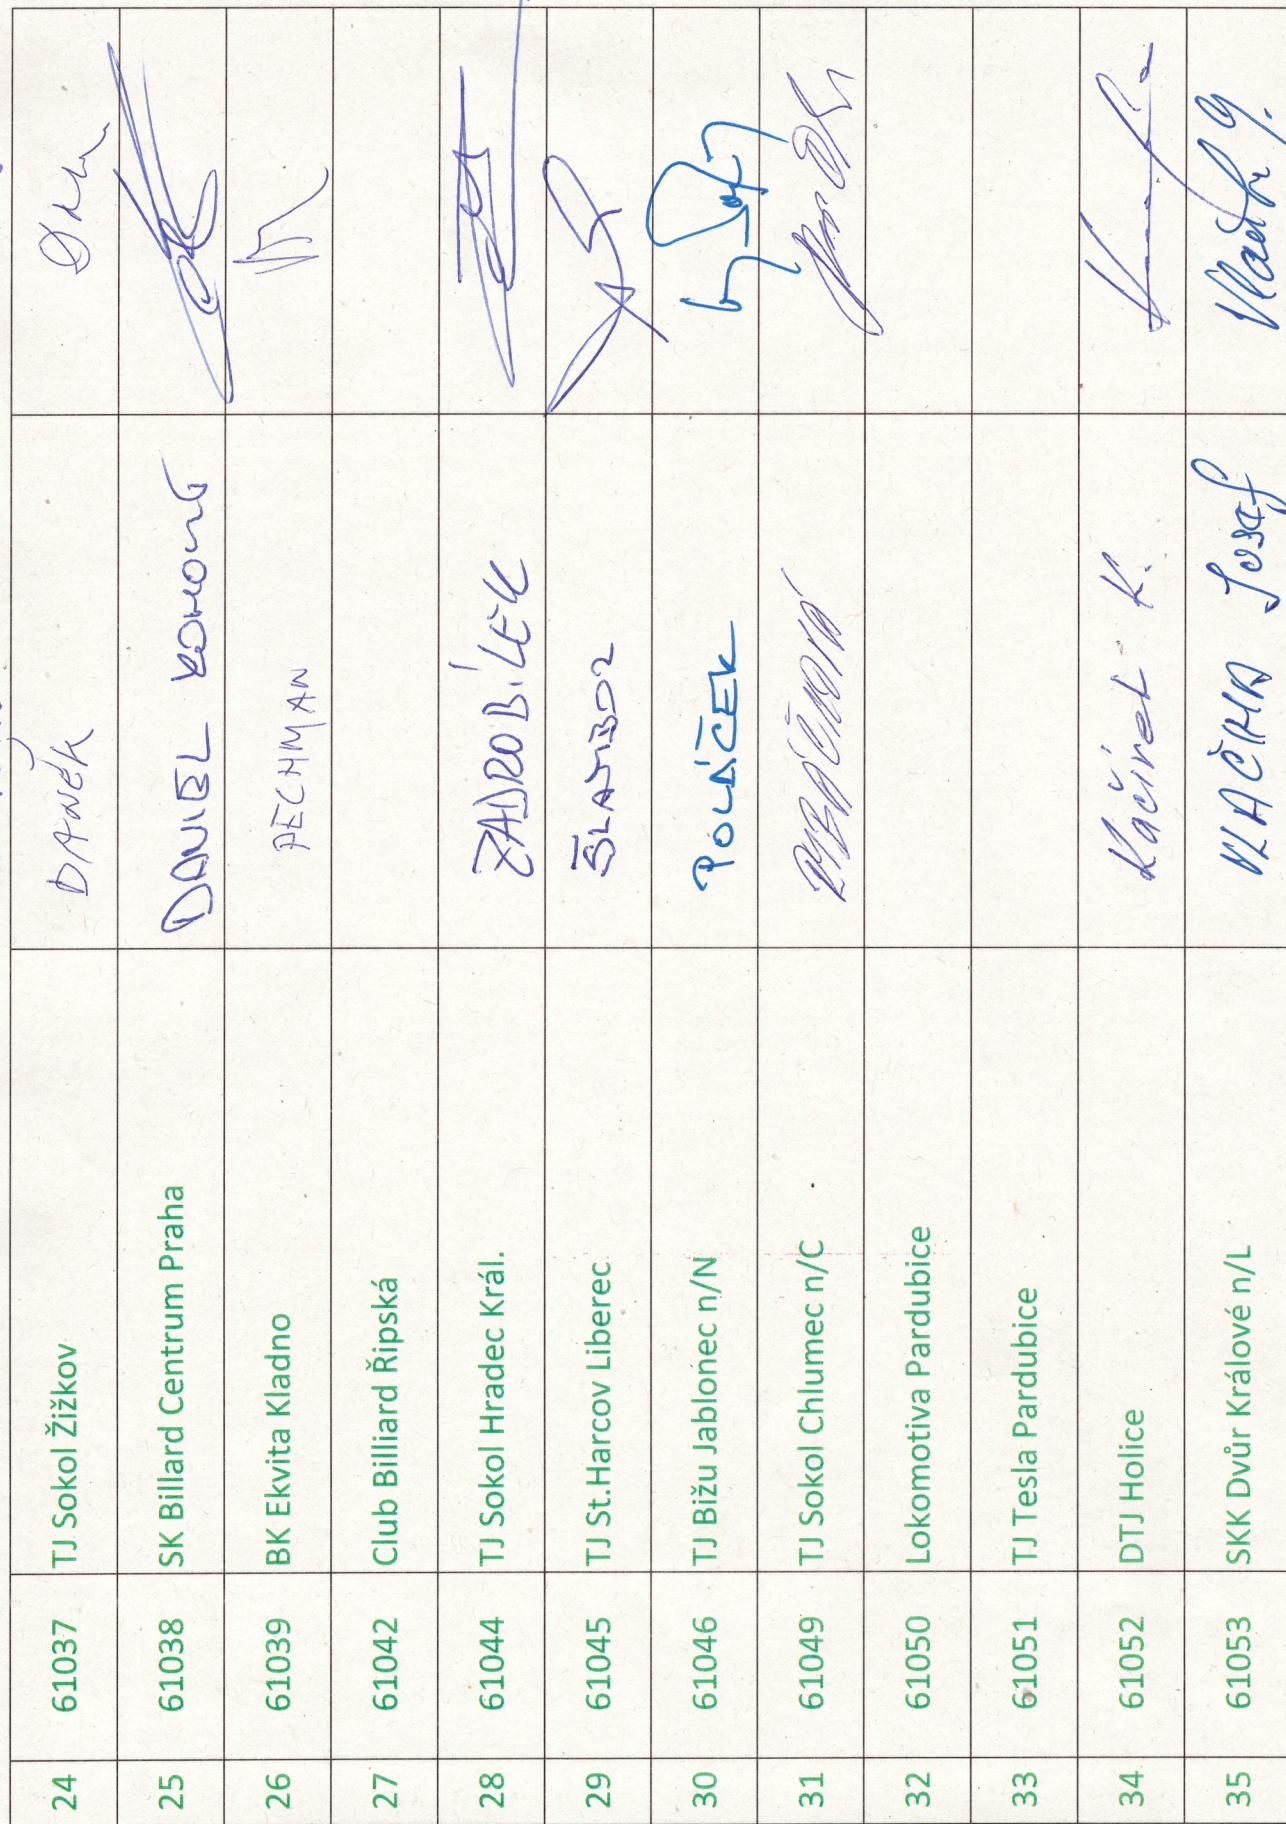 24 61037 TJ Sokol Žižkov DANĚK
25 61038 SK Billard Centrum Praha DANIEL KOHOUT
26 61039 BK Ekvita Kladno PECHMAN
27 61042 Club Billiard Řipská
28 61044 TJ Sokol Hradec Král. ZADROBÍLEK
29 61045 TJ St.Harcov Liberec
30 61046 TJ Bižu Jablonec n/N POLÁČEK
31 61049 TJ Sokol Chlumec n/C
32 61050 Lokomotiva Pardubice
33 61051 TJ Tesla Pardubice
34 61052 DTJ Holice Kačírek K.
35 61053 SKK Dvůr Králové n/L VLAČIHA Josef